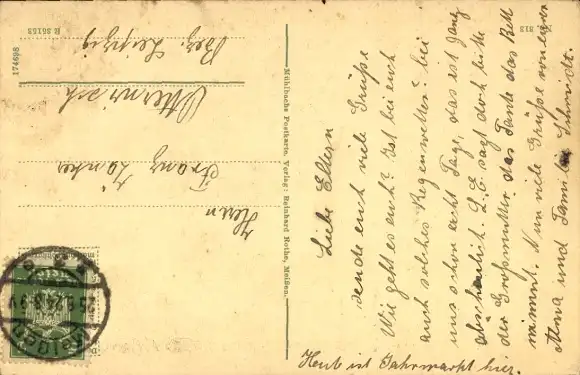 Liebe Eltern
sende euch viele Grüße
Wie geht es auch? Ist bei euch
auch solches Regenwetter? bei
uns schon acht Tage, das ist ganz
abscheulich. L. E. sagt doch bitte
der Großmutter das Tante das Bett
nimmt. Nun viele Grüße von euren
Anna und Familie Schmidt.
Heut ist Jahrmarkt hier.
Herrn
Franz Zänker
Otterwisch
Bez. Leipzig
Mühlbachs Postkarte, Verlag: Reinhard Rothe, Meißen.
174698
R 36153
313
Meißen